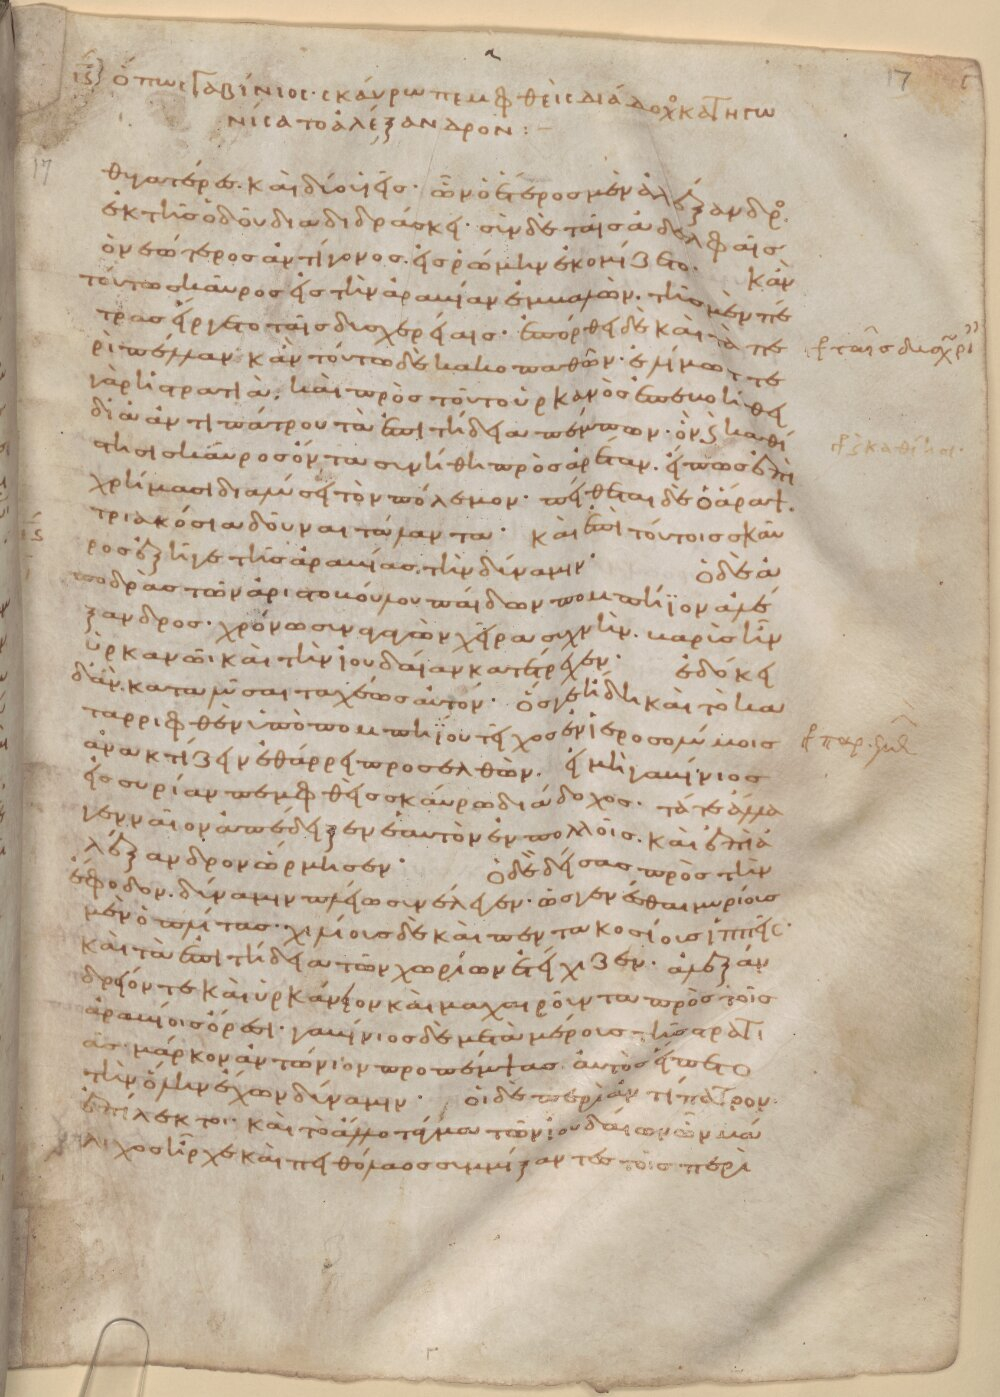 ιϛ ὅπως Γαβίνιος σκάυρω πεμφθεὶς διάδοχο κατηγω
νίσατο ἀλέξανδρον:
θυγατέρες. καὶ δύο υἱεῖς· ὧν ὁ ἕτερος μὲν ἀλέξανδρο.
ἐκ τῆς ὁδοῦ διαδιδράσκει· σὺν δὲ ταῖς ἀδελφαῖς
ὁ νεώτερος ἀντίγονος. εἰς ῥώμην ἐκομίζετο. κἀν
τούτω σκαῦρος εἰς τὴν ἀραβίαν ἐμβαλών. τῆς μὲν πέ
τρας εἴργετο ταῖς δυσχερείαις· ἐπόρθει δὲ καὶ τὰ πε
ρὶ πέλλαν κἀν τούτω δὲ κακοπαθῶν· ἐλίμωττε
γὰρ ἡ στρατιὰ. καὶ πρὸς τοῦτο ὑρκανὸς ἐπεβοήθει
διὰ ἀντιπάτρου τὰ ἐπιτήδεια πέμπων· ὃν ϗ καθί
ησι σκαῦρος ὄντα συνήθη πρὸς ἀρέταν. ὅπως ἐπὶ
χρήμασι διαλύσει τὸν πόλεμον· πείθεται δὲ ὁ ἄραψ.
τριακόσια δοῦναι τάλαντα· καὶ ἐπὶ τούτοις σκαῦ
ρος ἐξῆγε τῆς ἀραβίας. τὴν δύναμιν· ὁ δὲ ἀ
ποδρὰς τῶν ἀριστοβούλου παίδων πομπήϊον ἀλέ
ξανδρος· χρόνω συναγαγὼν χεῖρα συχνὴν. βαρὺς ἦν
ὑρκανῶι καὶ τὴν ἰουδαίαν κατέτρεχεν· ἐδόκει
δ' ἂν. καταλῦσαι ταχέως αὐτόν· ὅς γε ἤδη καὶ τὸ κα
ταρριφθὲν ὑπὸ πομπηΐου τεῖχος ἐν ἱεροσολύμοις
ἀνακτίζειν ἐθάρρει προσελθών. εἰ μὴ γαβίνιος
εἰς συρίαν πεμφθεὶς σκάυρω διάδοχος· τά τε ἄλλα
γενναῖον ἀπέδειξεν ἑαυτὸν ἐν πολλοῖς. καὶ ἐπὶ ἀ
λέξανδρον ὥρμησεν· ὁ δὲ δείσας πρὸς τὴν
ἔφοδον. δύναμιν πλείω συνέλεγεν· ὡς γενέσθαι μυρίους
μὲν ὁπλίτας· χιλίους δὲ καὶ πεντακοσίους ἱππεῖς·
καὶ τὰ ἐπιτήδεια τῶν χωρίων ἐτείχιζεν· ἀλεξάν
δρειόν τε καὶ ὑρκάνειον καὶ μαχαιροῦντα πρὸς τοῖς
ἀραβίοις ὄρεσι· γαβίνιος δὲ μετὰ μέρους τῆς στρατι
ᾶς· μάρκον ἀντώνιον προπέμψας. αὐτὸς εἵπετο
τὴν ὅλην ἔχων δύναμιν· οἱ δὲ περὶ ἀντίπατρον.
ἐπίλεκτοι· καὶ τὸ ἄλλο τάγμα τῶν ἰουδαίων ὧν μά
λιχος ἦρχε καὶ πειθόλαος συμμίξαντες τοῖς περὶ
γρ ταῖς δυσχωρί
γρ ϗ καθίησι.
17
17
ιϛ